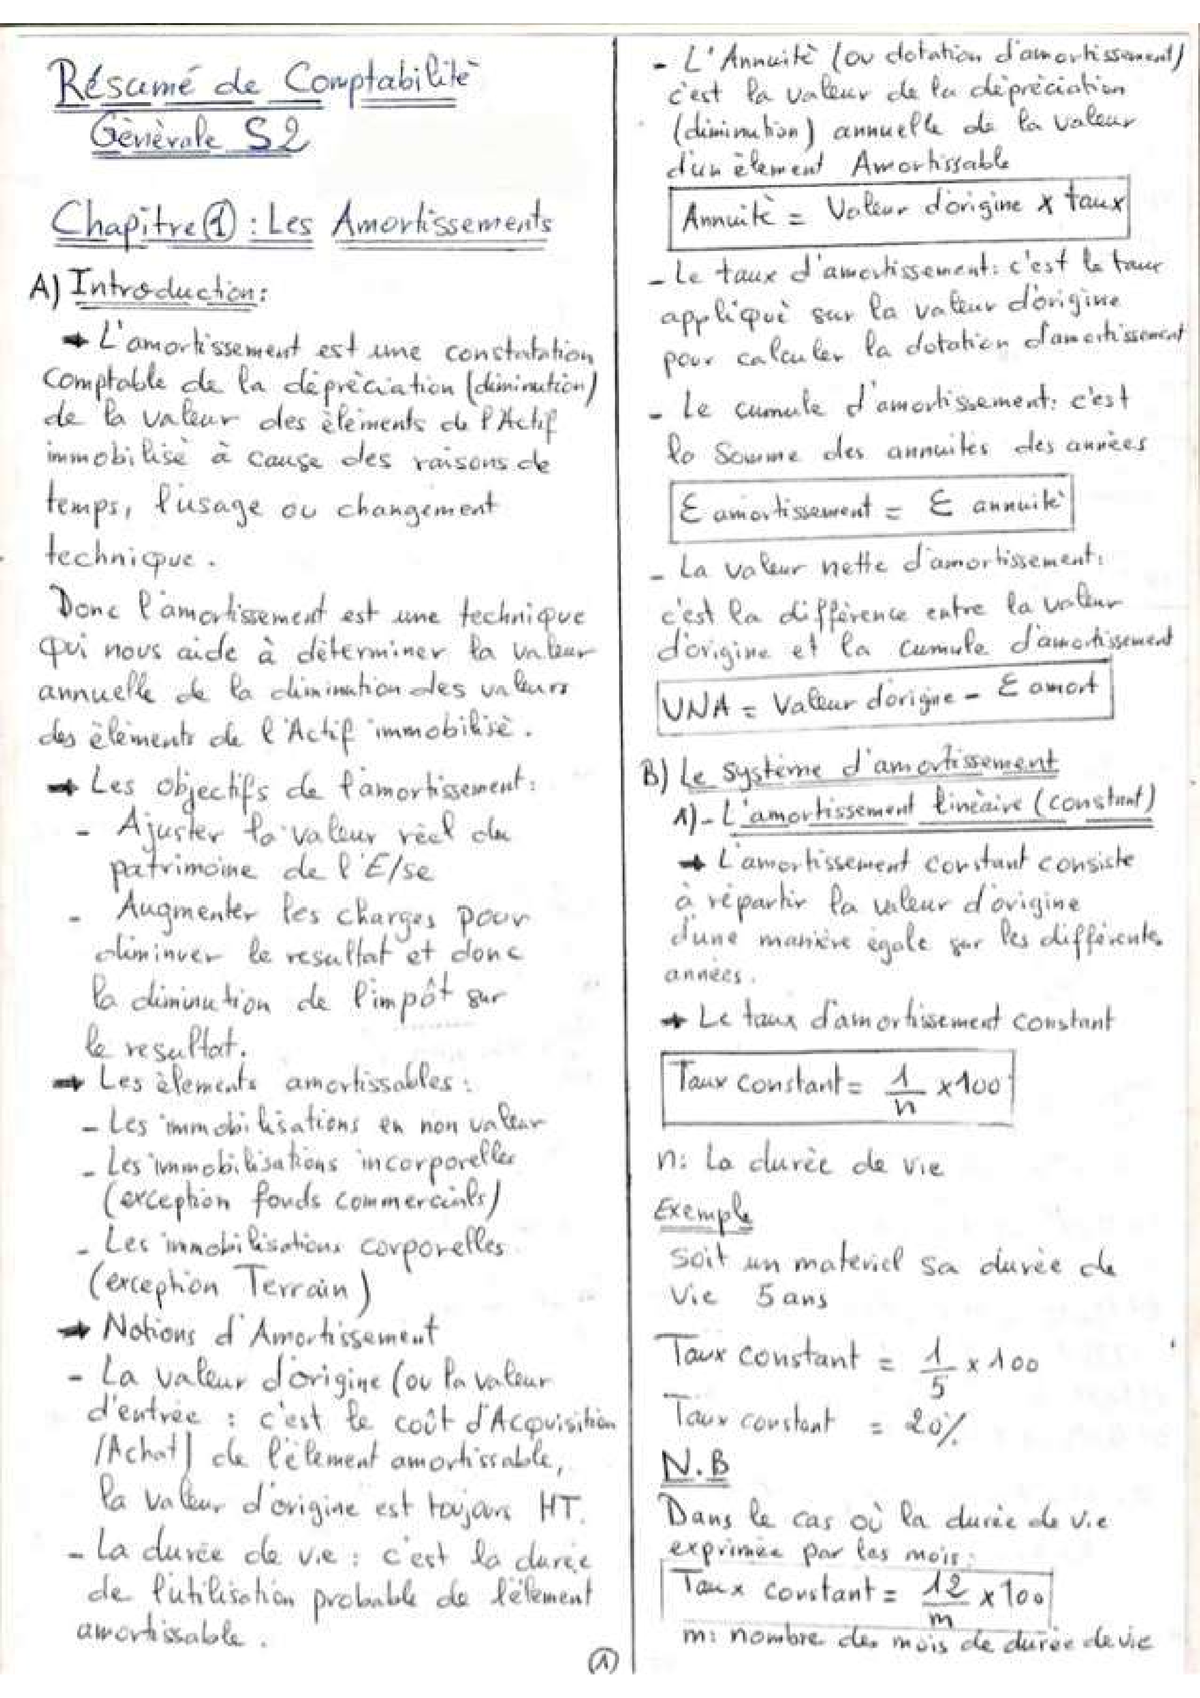 Résumé de Comptabilité
Génèrale S2
Chapitre 1 : Les Amortissements
A) Introduction:
→ L'amortissement est une constatation
comptable de la dèprèciation (diminution)
de la valeur des èlèments de l'Actif
immobilisè à cause des raisons de
temps, l'usage ou changement
technique.
Donc l'amortissement est une technique
qui nous aide à dèterminer la valeur
annuelle de la diminution des valeurs
des èlèments de l'Actif immobilisè.
→ Les objectifs de l'amortissement:
- Ajuster la valeur rèel du
patrimoine de l'E/se
- Augmenter les charges pour
diminuer le resultat et donc
la diminution de l'impôt sur
le resultat.
→ Les èlements amortissables:
- Les immobilisations en non valeur
- Les immobilisations incorporelles
(exception fonds commercials)
- Les immobilisations corporelles
(exception Terrain)
→ Notions d'Amortissement
- La valeur d'origine (ou la valeur
d'entrèe : c'est le coût d'Acquisition
/Achat) de l'èlement amortissable,
la valeur d'origine est toujours HT.
- La durèe de vie : c'est la durèe
de l'utilisation probable de l'èlement
amortissable.
- L'Annuitè (ou dotation d'amortissement)
c'est la valeur de la dèprèciation
(diminution) annuelle de la valeur
d'un èlement Amortissable
Annuitè = Valeur d'origine x taux
- Le taux d'amortissement: c'est le taux
appliquè sur la valeur d'origine
pour calculer la dotation d'amortissement
- Le cumule d'amortissement: c'est
la somme des annuitès des annèes
Σ amortissement = Σ annuitè
- La valeur nette d'amortissement:
c'est la diffèrence entre la valeur
d'origine et la cumule d'amortissement
VNA = Valeur d'origine - Σ amort
B) Le système d'amortissement
1)- L'amortissement linèaire (constant)
→ L'amortissement constant consiste
à rèpartir la valeur d'origine
d'une manière ègale sur les diffèrentes
annèes.
→ Le taux d'amortissement constant
Taux constant = 1/n x100
n: La durèe de vie
Exemple
soit un materiel sa durèe de
vie 5 ans
Taux constant = 1/5 x 100
Taux constant = 20%
N.B
Dans le cas où la durèe de vie
exprimèe par les mois:
Taux constant = 12/m x 100
m: nombre des mois de durèe de vie
1